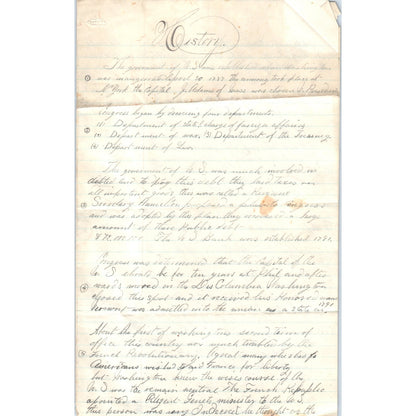 History.
The government of U.S. was established when Washington
was inaugurated April 30 1789 the ceremony took place at
N. York the Capital. J. Adams of Mass was chosen V. President
Congress began by forming four departments.
(1) Department of State & charge of foreign affairs
(2) Department of war, (3) Department of the Treasury
(4) Department of Law.
The government of U S was much involved in
debted and to pay this debt they laid taxes on
all important goods this was called a
Secretary Hamilton proposed a
and was adopted by this plan they a large
amount of there public debt
The U S Bank was established 1791.
Congress was determined that the Capital of the
U S should be for ten years at Phil and after
wards moved on the Dis Columbia Washington
this spot and it received his name
Vermont was admitted into the union as a state in 1791
About the first of Washington second term of
office this country was much troubled by the
French Revolutionary. A great many wished
Americans would aid France for liberty
but Washington knew the wise course of the
U S was to remain neutral The French Republic
appointed a Genet, minister to the U.S.
this person was very he thought as the